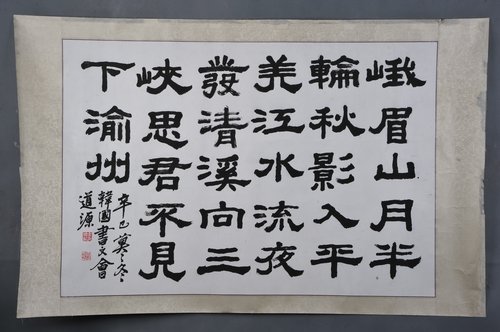 峨眉山月半
輪秋影入平
羌江水流夜
發清溪向三
峽思君不見
下渝州
辛巳冬
韓國書文會
道源